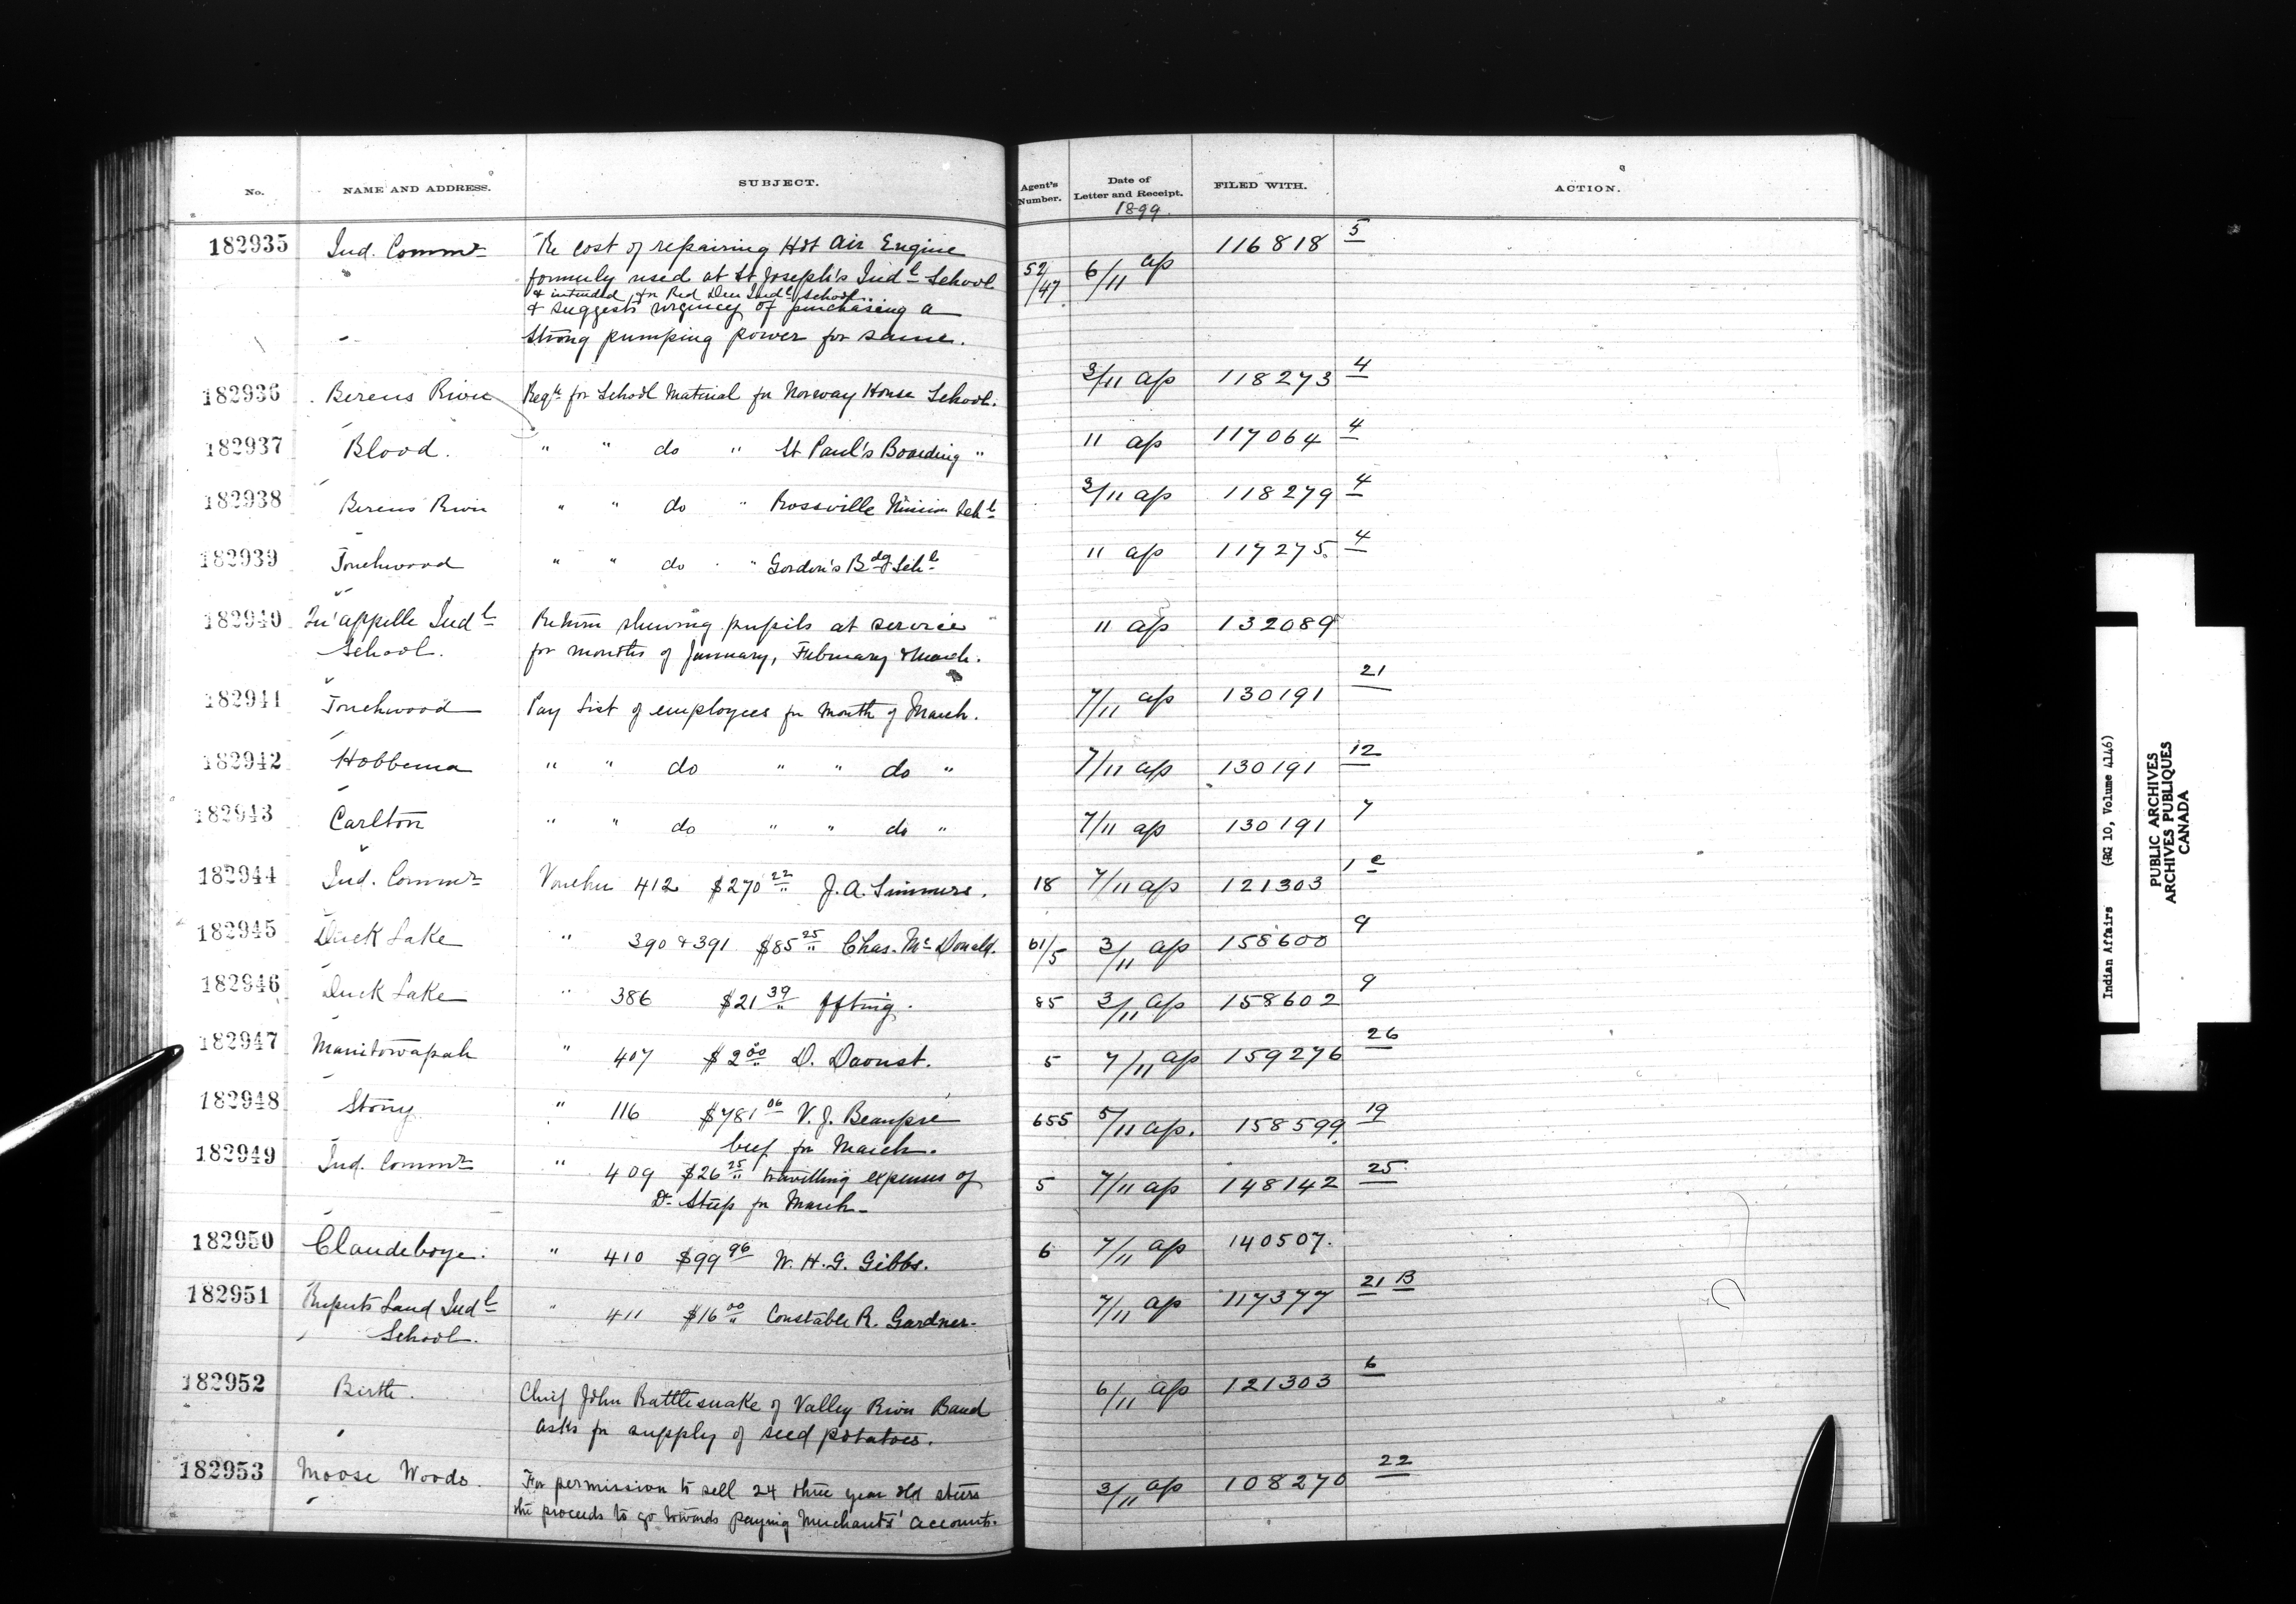 No. NAME AND ADDRESS. SUBJECT. Agent's Number. Date of Letter and Receipt. FILED WITH. ACTION.
1899.
182935 Ind. Commr The cost of repairing Hot Air Engine 52/47 6/11 ap 116818 5
formerly used at St Joseph's Indl School
& intended for Red Deer Indl School
& suggests urgency of purchasing a
strong pumping power for same.
182936 Berens River Reqn for School Material for Norway House School. 3/11 ap 118273 4
182937 Blood. " " do " St Paul's Boarding " 11 ap 117064 4
182938 Berens River " " do " Rossville Mission Schl 3/11 ap 118279 4
182939 Touchwood " " do " Gordon's Bdg Schl 11 ap 117275. 4
182940 Qu'appelle Indl Return shewing pupils at service 11 ap 132089
School. for months of January, February & March.
182941 Touchwood Pay List of employees for Month of March. 7/11 ap 130191 21
182942 Hobbema " " do " " do " 7/11 ap 130191 12
182943 Carlton " " do " " do " 7/11 ap 130191 7
182944 Ind. Commr Voucher 412 $270 22 J. A. Simmers. 18 7/11 ap 121303 1 c
182945 Duck Lake " 390 & 391 $85 25 Chas. Mc Donald. 61/5 3/11 ap 158600 9
182946 Duck Lake " 386 $21 39 85 3/11 ap 158602 9
182947 Manitowapah " 407 $2 00 D. Daoust. 5 7/11 ap 159276 26
182948 Stony " 116 $781 06 V. J. Beaupré 655 5/11 ap. 158599 19
beef for March.
182949 Ind. Commr " 409 $26 25 travelling expenses of 5 7/11 ap 148142 25
Dr Steep for March
182950 Clandeboye. " 410 $99 96 W. H. G. Gibbs. 6 7/11 ap 140507.
182951 Ruperts Land Indl " 411 $16 00 Constable R. Gardner. 7/11 ap 117377 21 B
School.
182952 Birtle. Chief John Rattlesnake of Valley River Band 6/11 ap 121303 6
asks for supply of seed potatoes.
182953 Moose Woods. For permission to sell 24 three year old steers 3/11 ap 108270 22
the proceeds to go towards paying Merchants' accounts.
Indian Affairs (RG 10, Volume 4146)
PUBLIC ARCHIVES
ARCHIVES PUBLIQUES
CANADA